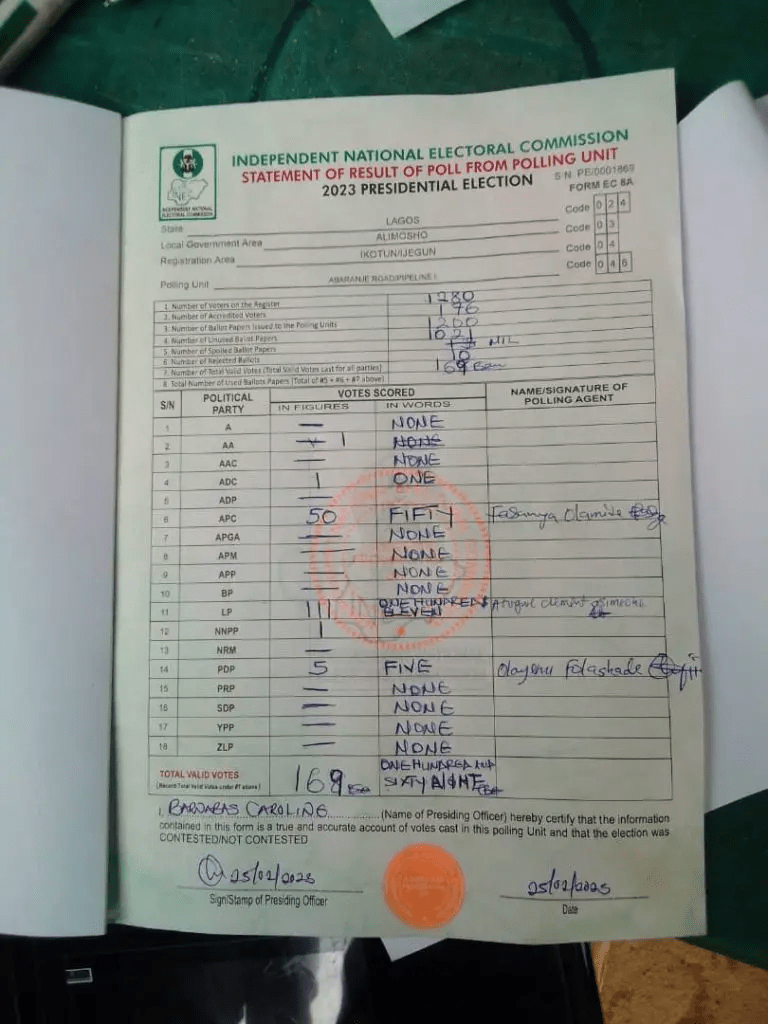 INDEPENDENT NATIONAL ELECTORAL COMMISSION
STATEMENT OF RESULT OF POLL FROM POLLING UNIT
2023 PRESIDENTIAL ELECTION
S/N. PE/0001869
FORM EC 8A
INDEPENDENT NATIONAL ELECTORAL COMMISSION
State LAGOS Code 0 2 4
Local Government Area ALIMOSHO Code 0 3
Registration Area IKOTUN/IJEGUN Code 0 4
Polling Unit ABARANJE ROAD/PIPELINE I Code 0 4 6
1. Number of Voters on the Register 1280
2. Number of Accredited Voters 176
3. Number of Ballot Papers Issued to the Polling Units 1200
4. Number of Unused Ballot Papers 1021
5. Number of Spoiled Ballot Papers NIL
6. Number of Rejected Ballots 10
7. Number of Total Valid Votes (Total Valid Votes Cast for all parties) 169
8. Total Number of Used Ballots Papers (Total of #5 + #6 + #7 above)
S/N POLITICAL PARTY VOTES SCORED NAME/SIGNATURE OF POLLING AGENT
IN FIGURES IN WORDS
1 A — NONE
2 AA 1 NONE
3 AAC — NONE
4 ADC 1 ONE
5 ADP —
6 APC 50 FIFTY Fasanya Olamide
7 APGA — NONE
8 APM — NONE
9 APP — NONE
10 BP — NONE
11 LP 111 ONE HUNDRED & ELEVEN Clement
12 NNPP 1
13 NRM —
14 PDP 5 FIVE Folashade
15 PRP — NONE
16 SDP — NONE
17 YPP — NONE
18 ZLP — NONE
TOTAL VALID VOTES 169 ONE HUNDRED AND
(Record Total Valid Votes under #7 above) SIXTY NINE
I, BARNABAS CAROLINE (Name of Presiding Officer) hereby certify that the information
contained in this form is a true and accurate account of votes cast in this polling Unit and that the election was
CONTESTED/NOT CONTESTED
25/02/2023 25/02/2023
Sign/Stamp of Presiding Officer Date